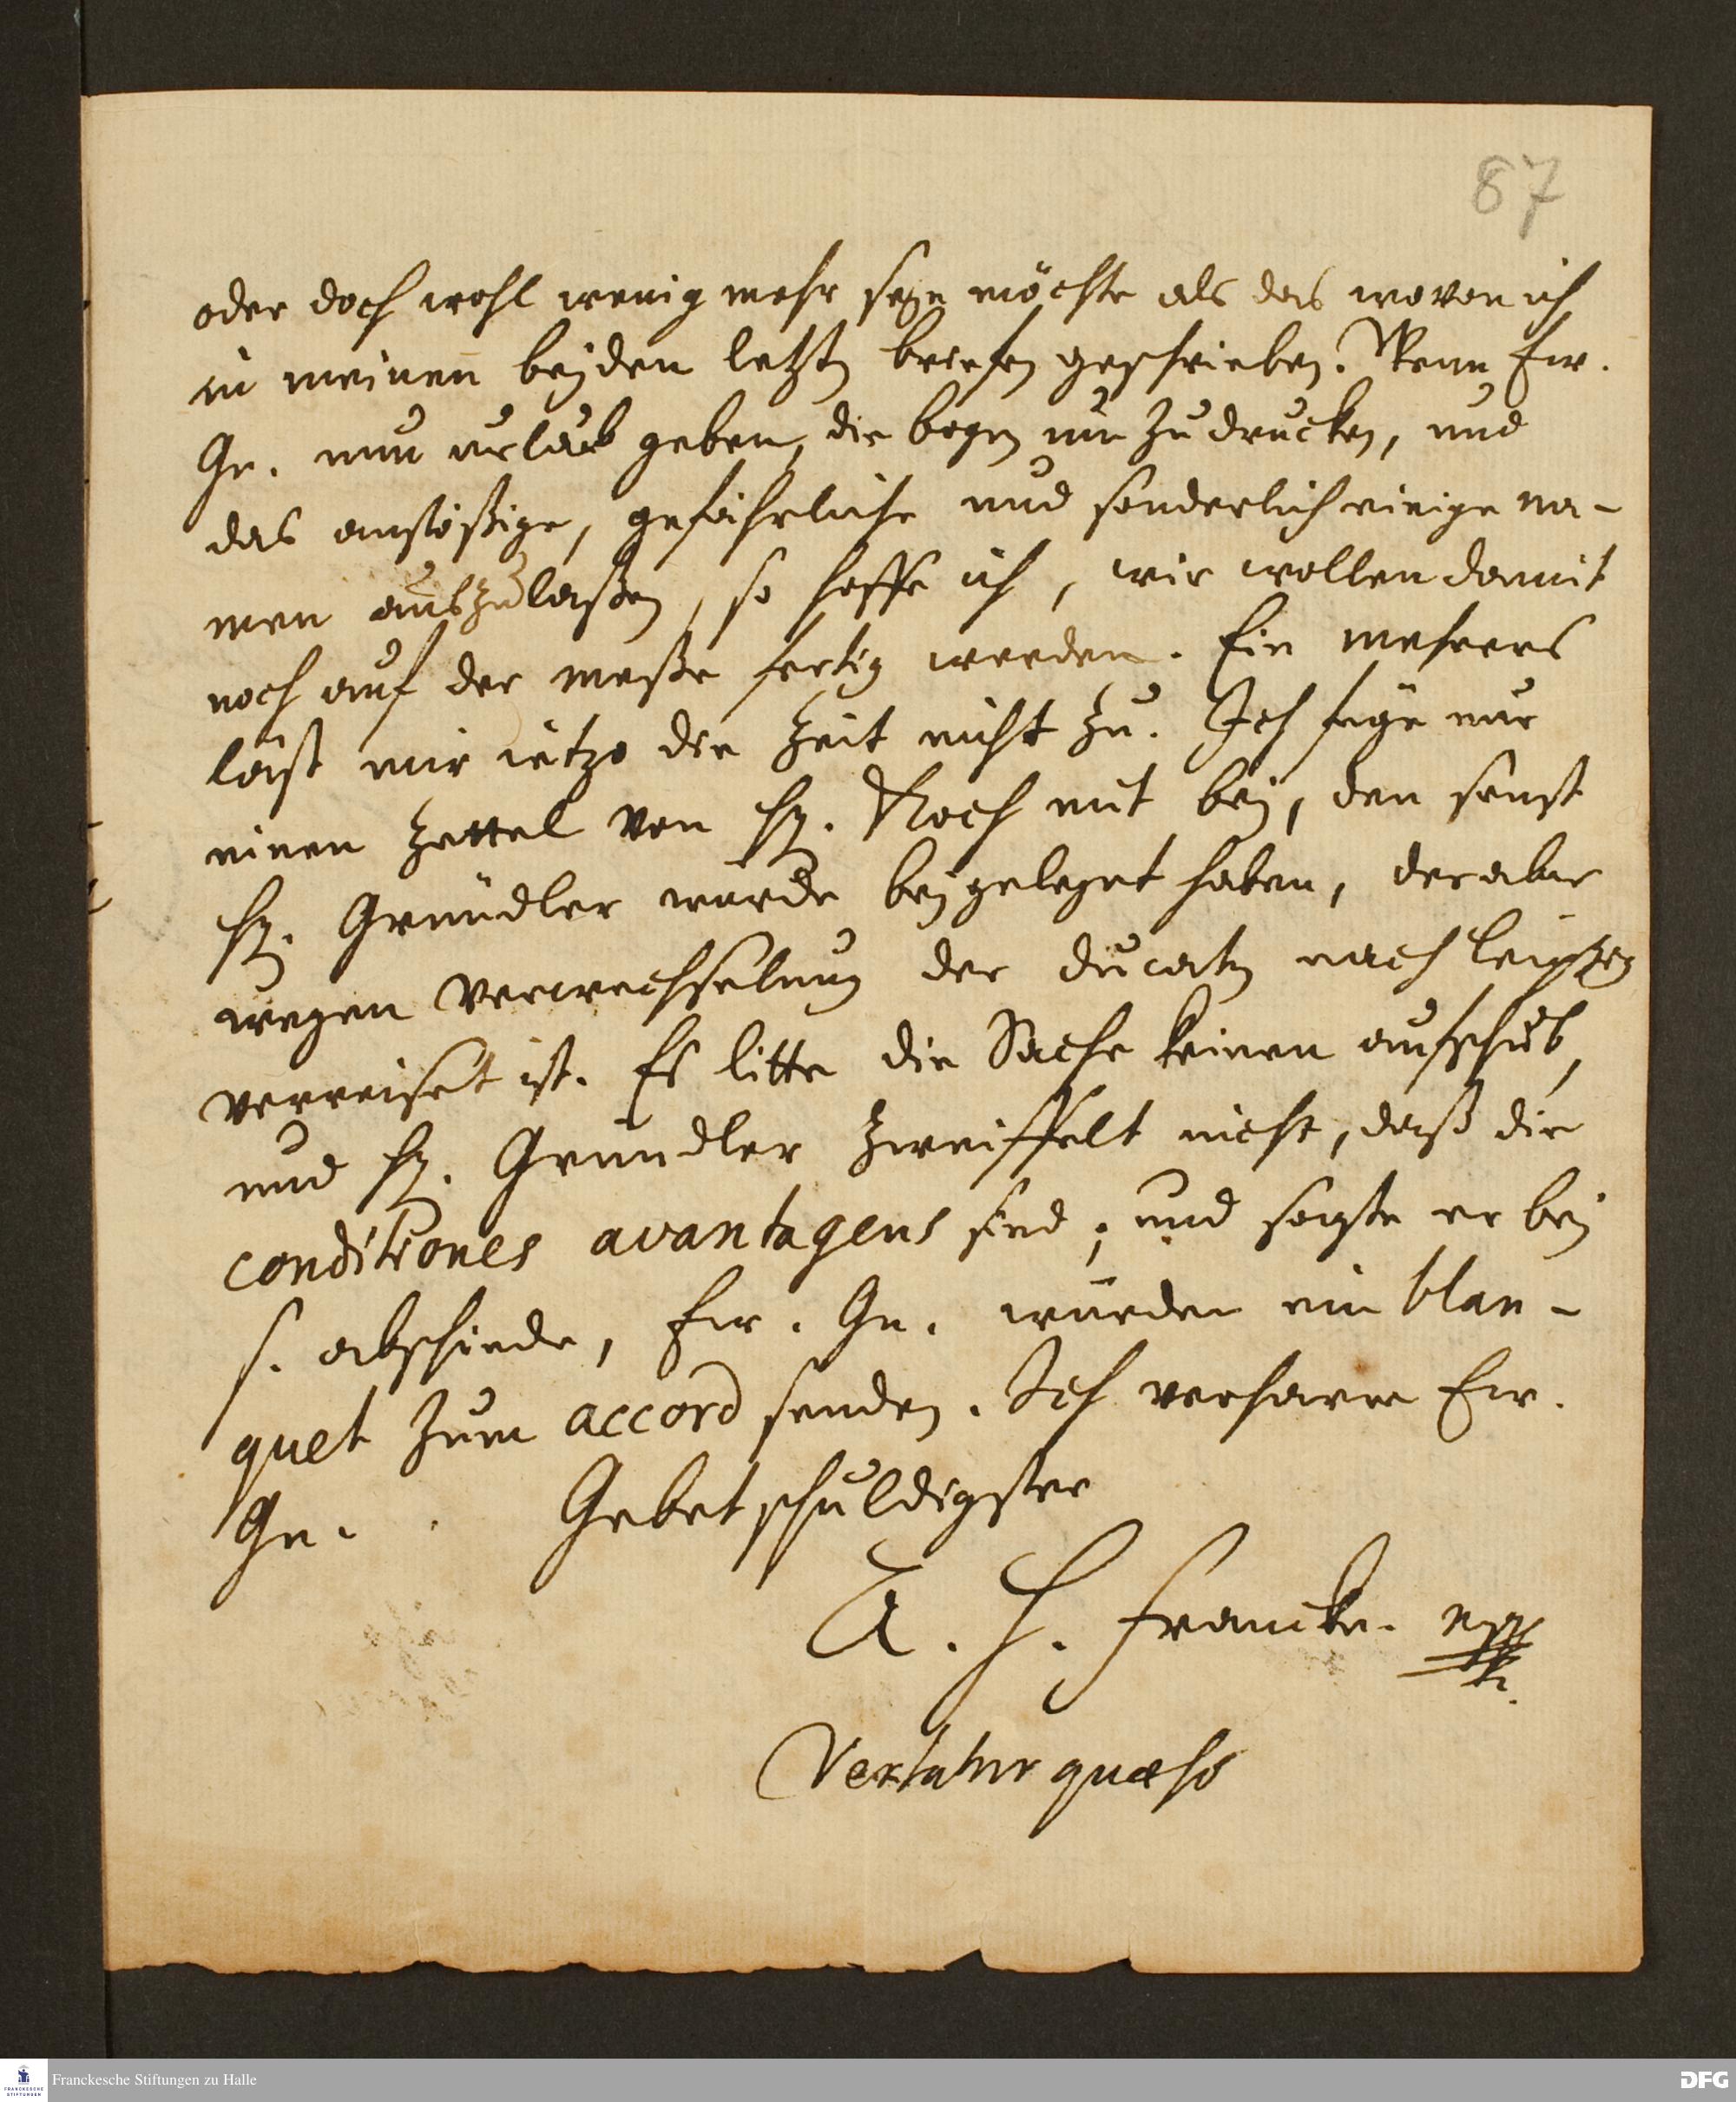 87
oder doch wohl wenig mehr seyn möchte als das wovon ich
in meinen beyden letzten briefen geschrieben. Wenn Ew.
Gn. nun urlaub geben, die bogen nur zu drucken, und
das anstößige, gefährliche und sonderlich einige na-
men auszulaßen, so hoffe ich, wir wollen damit
noch auf der meße fertig werden. Ein mehrers
läst mir ietzo die Zeit nicht zu. Ich füge nur
einen Zettel von H. Koch mit bey, den sonst
H. Gründler würde beygeleget haben, der aber
wegen Verwechselung der ducaten nach leipzig
verreiset ist. Es litte die Sache keinen aufschub,
und H. Gründler zweiffelt nicht, daß die
conditiones avantageus sind; und sagte er bey
s. abschiede, Ew. Gn. würden ein blan-
quet zum accord senden. Ich verharre Ew.
Gn. Gebetschuldigster
A. H. Francke.
Vertatur quaeso
Franckesche Stiftungen zu Halle
DFG
FRANCKESCHE
STIFTUNGEN